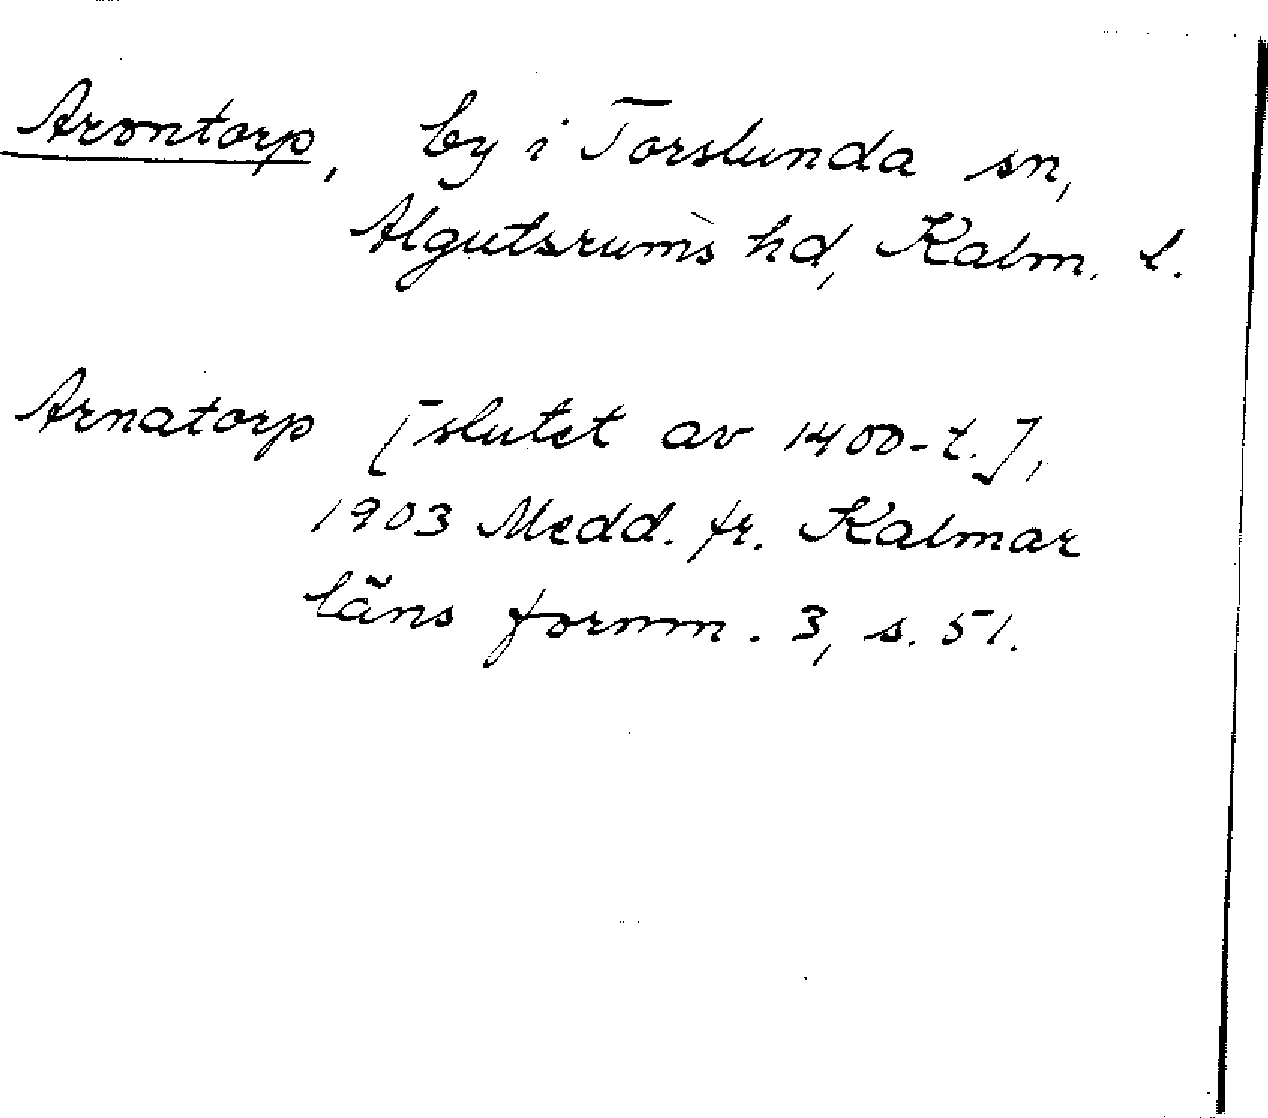 Arontorp, by i Torslunda sn,
Algutsrums hd, Kalm. l.
Arnatorp [slutet av 1400-t.],
1903 Medd. fr. Kalmar
läns fornm. 3, s. 51.